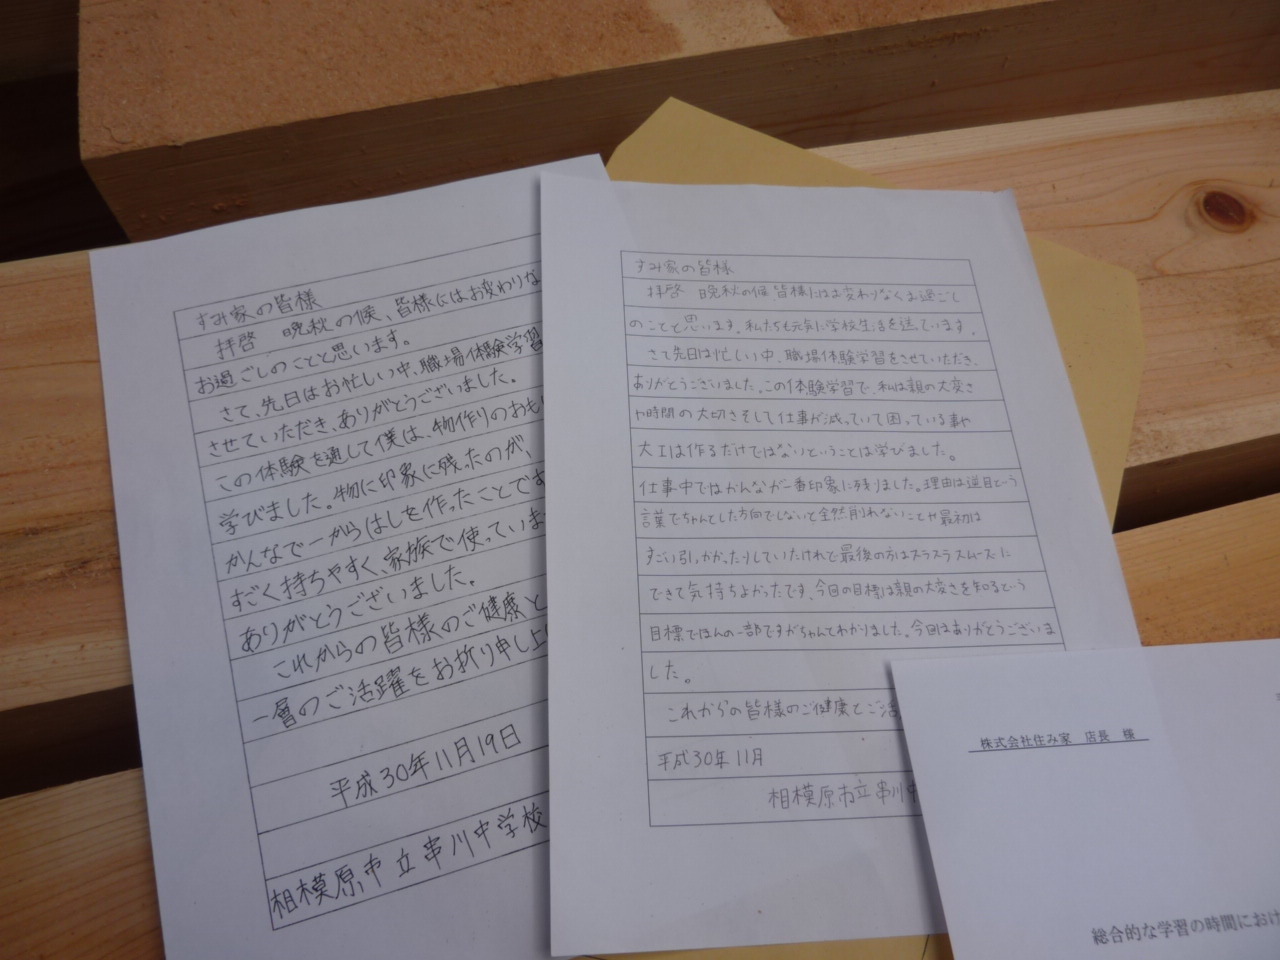 すみ家の皆様
拝啓 晩秋の候、皆様にはお変わりな
お過ごしのことと思います。
さて、先日はお忙しい中、職場体験学習
させていただき、ありがとうございました。
この体験を通して僕は、物作りのおも
学びました。物に印象に残ったのが、
かんなで一からはしを作ったことです
すごく持ちやすく、家族で使っていま
ありがとうございました。
これからの皆様のご健康と
一層のご活躍をお祈り申し上
平成30年11月19日
相模原市立串川中学校
すみ家の皆様
拝啓 晩秋の候皆様にはお変わりなくお過ごし
のことと思います。私たちも元気に学校生活を送っています。
さて先日は忙しい中、職場体験学習をさせていただき、
ありがとうございました。この体験学習で、私は親の大変さ
や時間の大切さそして仕事が減っていて困っている事や
大工は作るだけではないということは学びました。
仕事中ではかんなが一番印象に残りました。理由は逆目という
言葉でちゃんとした方向でしないと全然削れないことや最初は
すごい引っかかったりしていたけれど最後の方はスラスラスムーズに
できて気持ちよかったです。今回の目標は親の大変さを知るという
目標でほんの一部ですがちゃんとわかりました。今回はありがとうございま
した。
これからの皆様のご健康とご活
平成30年11月
相模原市立串川中
株式会社住み家 店長 様
総合的な学習の時間におけ